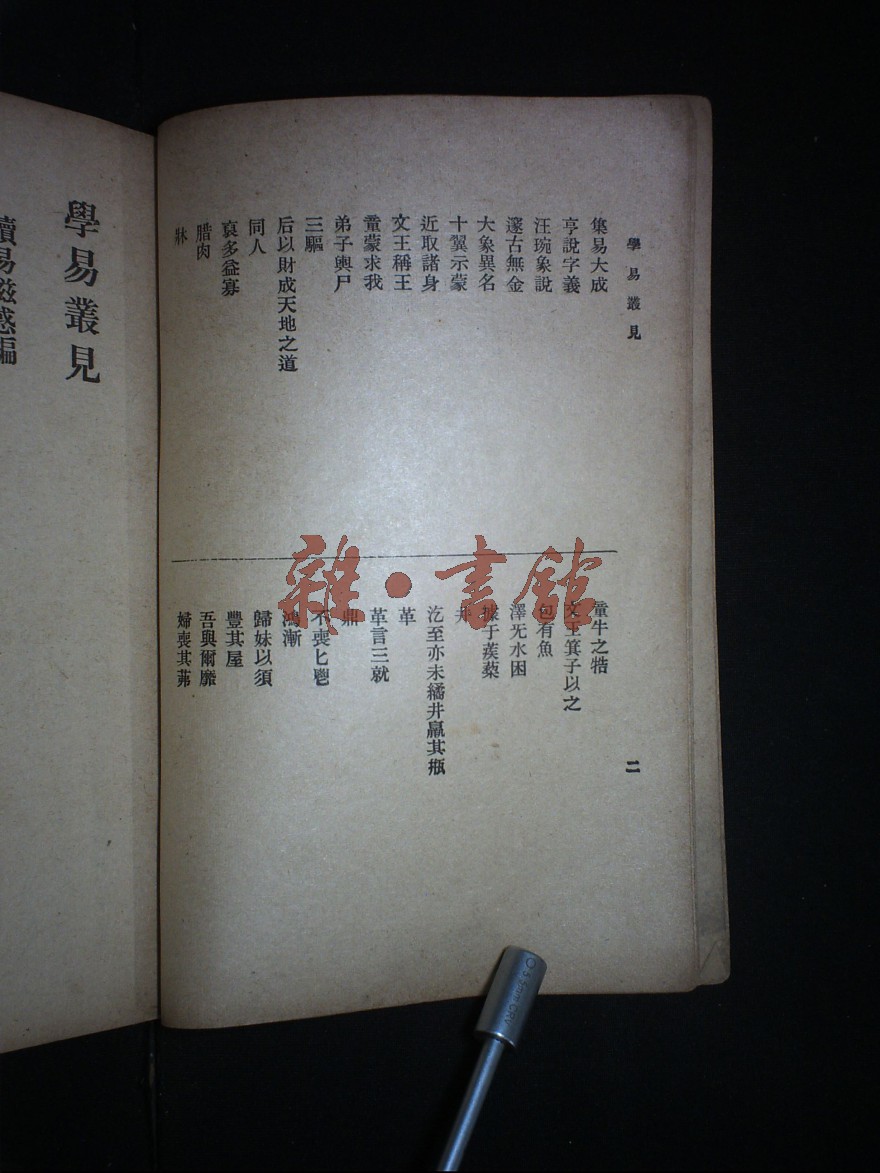 學易叢見
集易大成
亨說字義
汪琬象說
邃古無金
大象異名
十翼示蒙
近取諸身
文王稱王
童蒙求我
弟子輿尸
三驅
后以財成天地之道
同人
裒多益寡
腊肉
牀
童牛之牿
文王箕子以之
包有魚
澤无水困
據于蒺蔾
井
汔至亦未繘井羸其瓶
革
革言三就
鼎
不喪匕鬯
鴻漸
歸妹以須
豐其屋
吾與爾靡
婦喪其茀
二
學易叢見
讀易
雜·書館